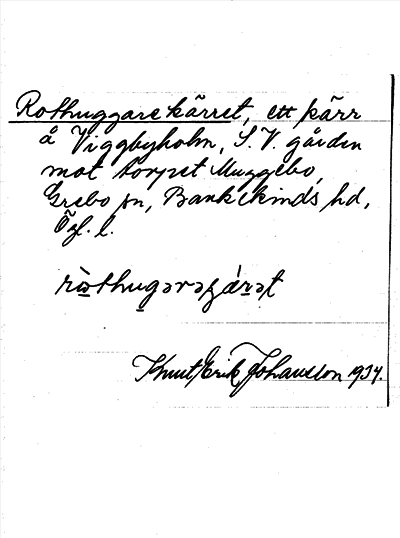 Rothuggarekärret, ett kärr
å Viggbyholm, S.V. gården
mot torpet Muggebo,
Grebo sn, Bankekinds hd,
Ög. l.
Knut Erik Johansson 1934.